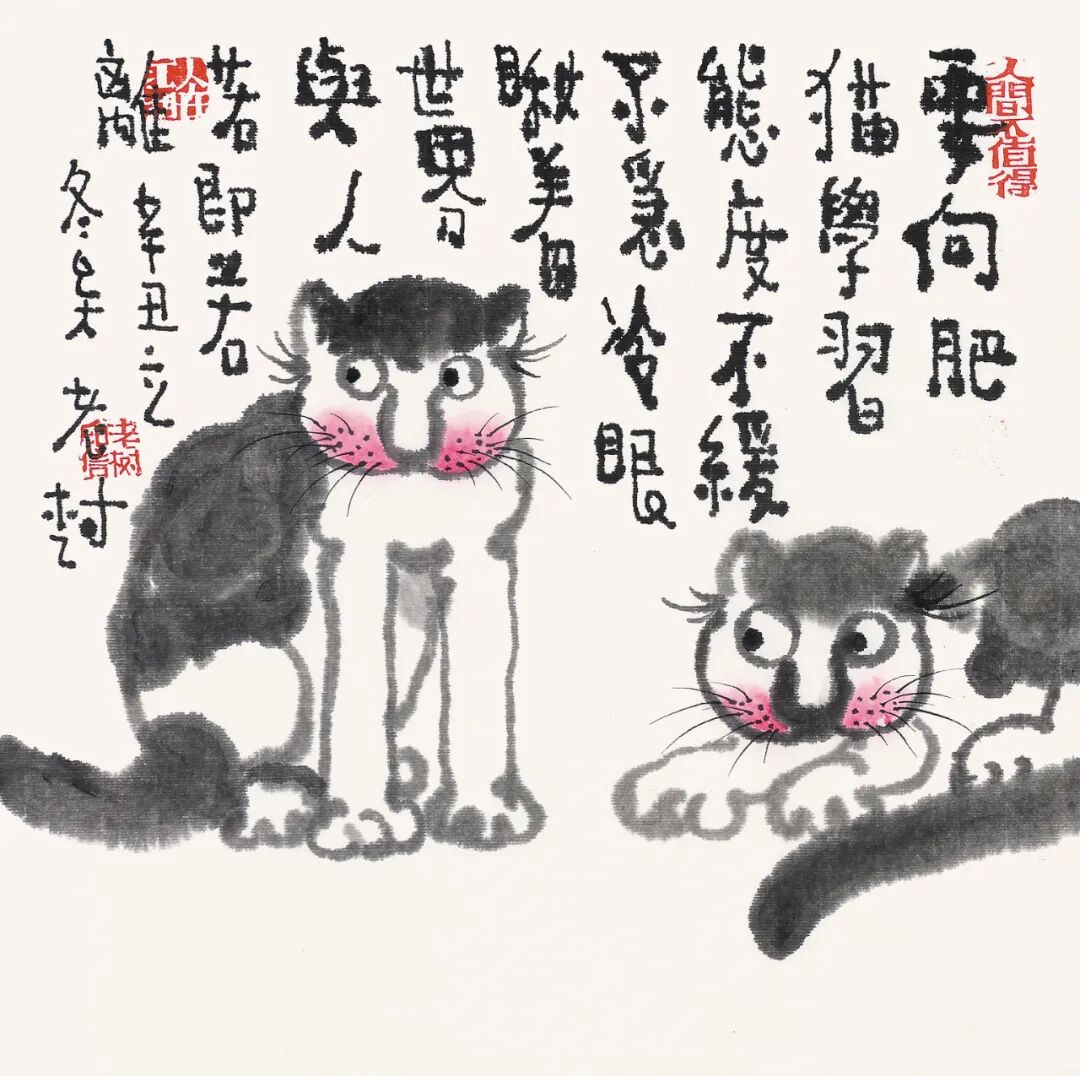 人間不值得
要向肥
猫學習
態度不緩
不急冷眼
瞅着
世界
與人
若即若
離
辛丑立
冬矣
老树
老树